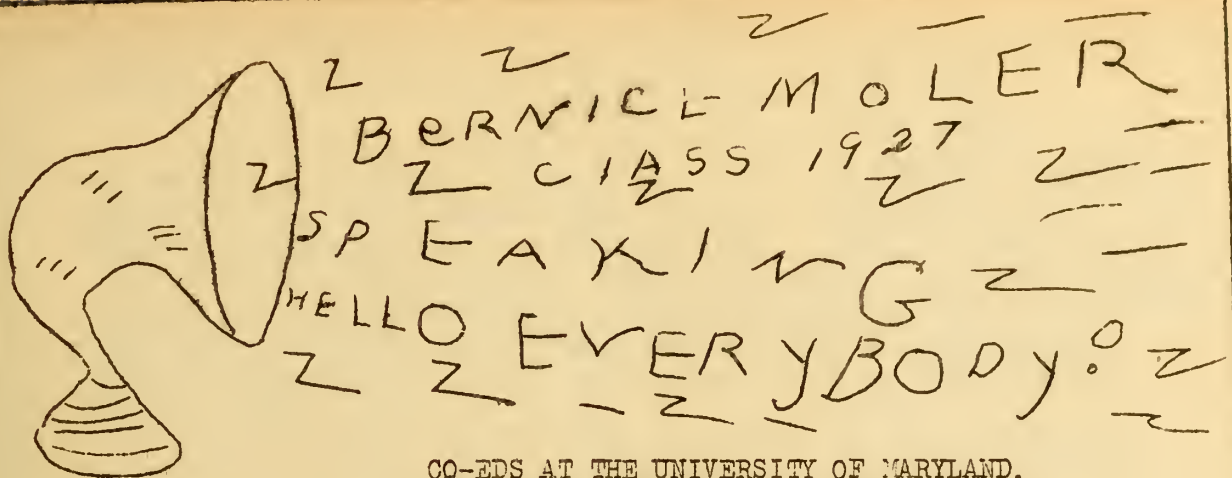 BeRNICE MOLER
ClASS 1927
SPEAKING
HELLO EVERYBODY:
CO-EDS AT THE UNIVERSITY OF MARYLAND.